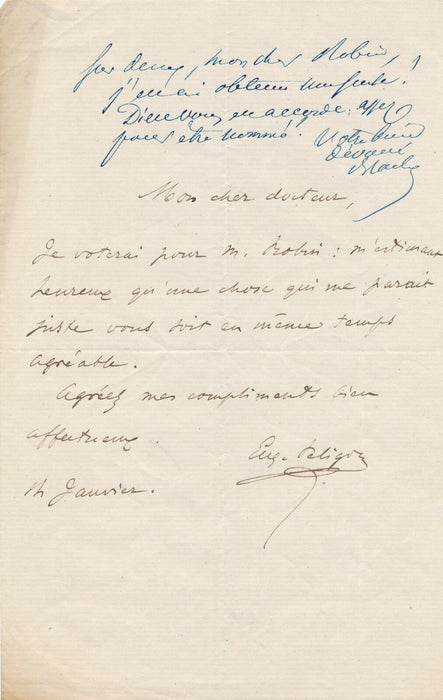 Sur deux, mon cher Robin,
j'en ai obtenu une seule!
Dieu vous en accorde assez
pour être nommé.
Votre bien
dévoué
Mon cher docteur,
Je voterai pour M. Robin : m'estimant
heureux qu'une chose qui me parait
juste vous soit en même temps
agréable.
Agréez mes compliments bien
affectueux.
Eug. Peligot
Janvier.